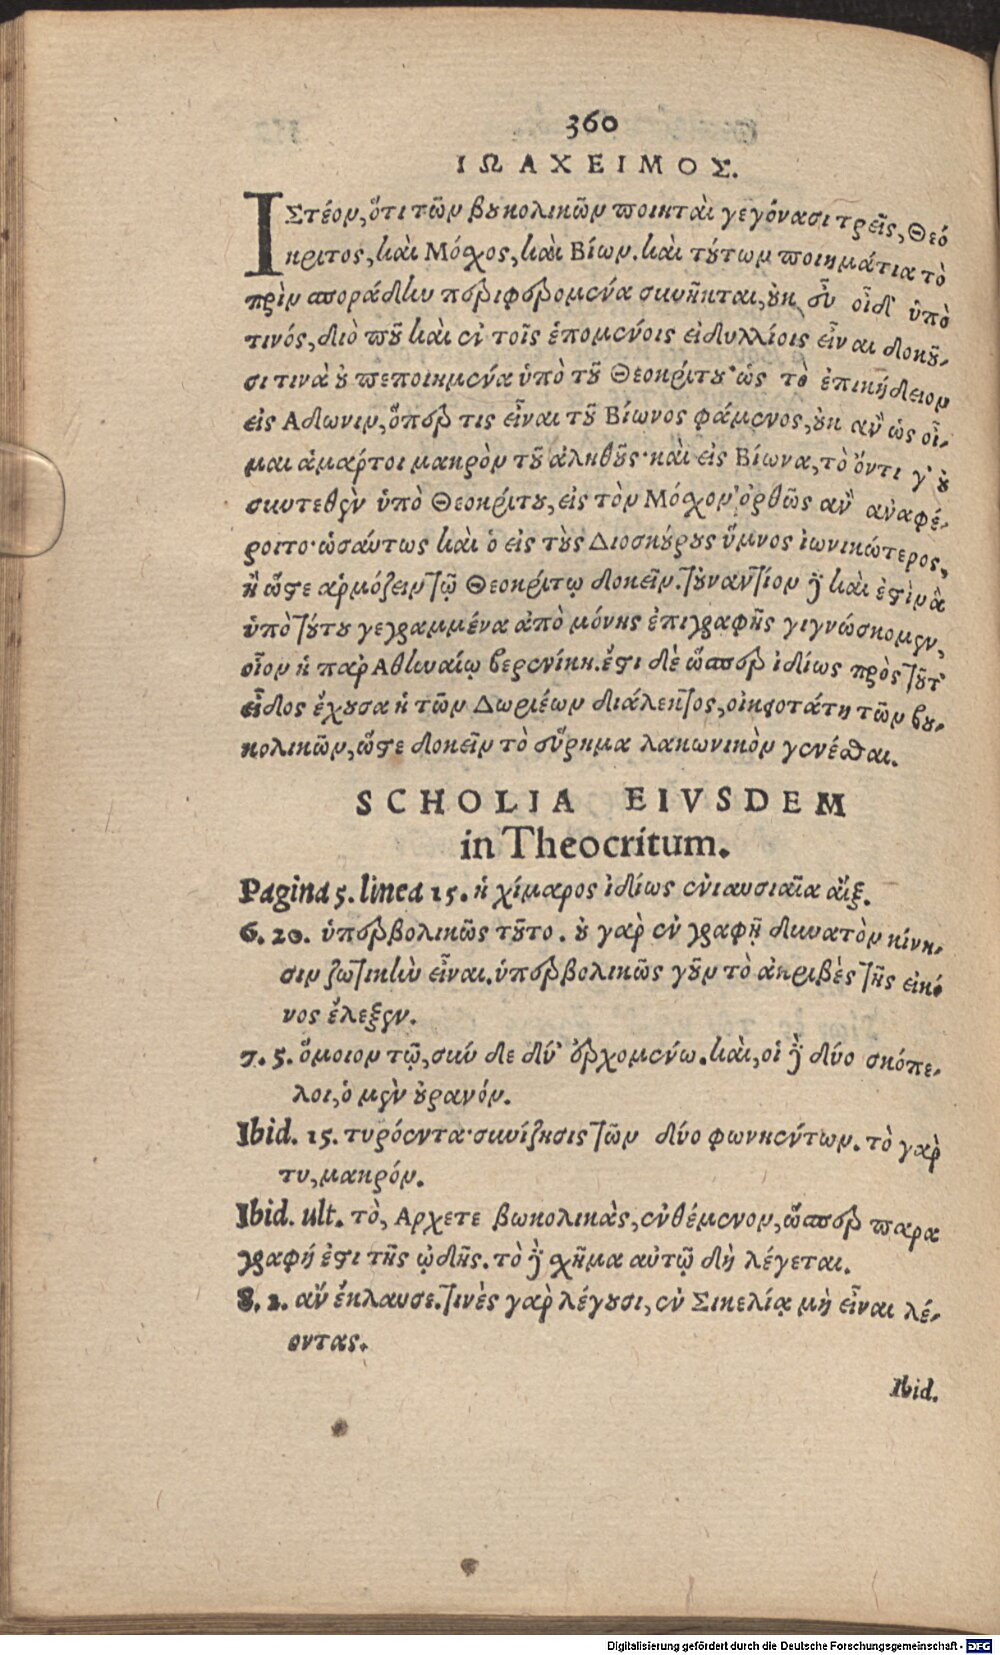 360
ΙΩΑΧΕΙΜΟΣ.
ΙΣτέον, ὅτι τῶν βουκολικῶν ποιηταὶ γεγόνασι τρεῖς, Θεό
κριτος, καὶ Μόσχος, καὶ Βίων. καὶ τούτων ποιημάτια τὸ
πρὶν σποράδην περιφερόμενα συνῆκται, οὐκ οἶδ' ὑπό
τινός, διὸ που καὶ ἐν τοῖς ἑπομένοις εἰδυλλίοις εἶναι δοκοῦ-
σι τινὰ οὐ πεποιημένα ὑπὸ τοῦ Θεοκρίτου· ὡς τὸ ἐπικήδειον
εἰς Αδωνιν, ὅπερ τις εἶναι τοῦ Βίωνος φάμενος, οὐκ ἂν ὡς οἶ-
μαι ἁμάρτοι μακρὸν τοῦ ἀληθοῦς· καὶ εἰς Βίωνα, τὸ ὄντι γ' οὐ
συντεθὲν ὑπὸ Θεοκρίτου, εἰς τὸν Μόσχον ὀρθῶς ἂν ἀναφέ-
ροιτο· ὡσαύτως καὶ ὁ εἰς τοὺς Διοσκούρους ὕμνος ἰωνικώτερος,
ἢ ὥστε ἁρμόζειν τῷ Θεοκρίτῳ δοκεῖν. τοὐναντίον δὲ καὶ ἔστιν ἃ
ὑπὸ τούτου γεγραμμένα ἀπὸ μόνης ἐπιγραφῆς γιγνώσκομεν,
οἷον ἡ παρ Αθηναίῳ βερενίκη. ἔστι δὲ ὥσπερ ἰδίως πρὸς τοῦτ'
εἶδος ἔχουσα ἡ τῶν Δωριέων διάλεκτος, οἰκειοτάτη τῶν βου-
κολικῶν, ὥστε δοκεῖν τὸ εὕρημα λακωνικὸν γενέσθαι.
SCHOLIA EIVSDEM
in Theocritum.
Pagina 5. linea 15. ἡ χίμαρος ἰδίως ἐνιαυσιαῖα αἴξ.
6. 20. ὑπερβολικῶς τοῦτο. οὐ γὰρ ἐν γραφῇ δυνατὸν κίνη-
σιν ζωτικὴν εἶναι. ὑπερβολικῶς γοῦν τὸ ἀκριβὲς τῆς εἰκό
νος ἔλεξεν.
7. 5. ὅμοιον τῷ, σὺν δε δύ' ἐρχομένω. καὶ, οἱ δὲ δύο σκόπε-
λοι, ὁ μὲν οὐρανόν.
Ibid. 15. τυρόεντα· συνίζησις τῶν δύο φωνηέντων. τὸ γὰρ
τυ, μακρόν.
Ibid. ult. τὸ, Αρχετε βωκολικὰς, ἐνθέμενον, ὥσπερ παρα
γραφή ἐστι τῆς ᾠδῆς. τὸ δὲ σχῆμα αὐτῷ δὴ λέγεται.
8. 2. ἂν ἔκλαυσε. τινὲς γὰρ λέγουσι, ἐν Σικελίᾳ μὴ εἶναι λέ-
οντας.
Ibid.
Digitalisierung gefördert durch die Deutsche Forschungsgemeinschaft - DFG